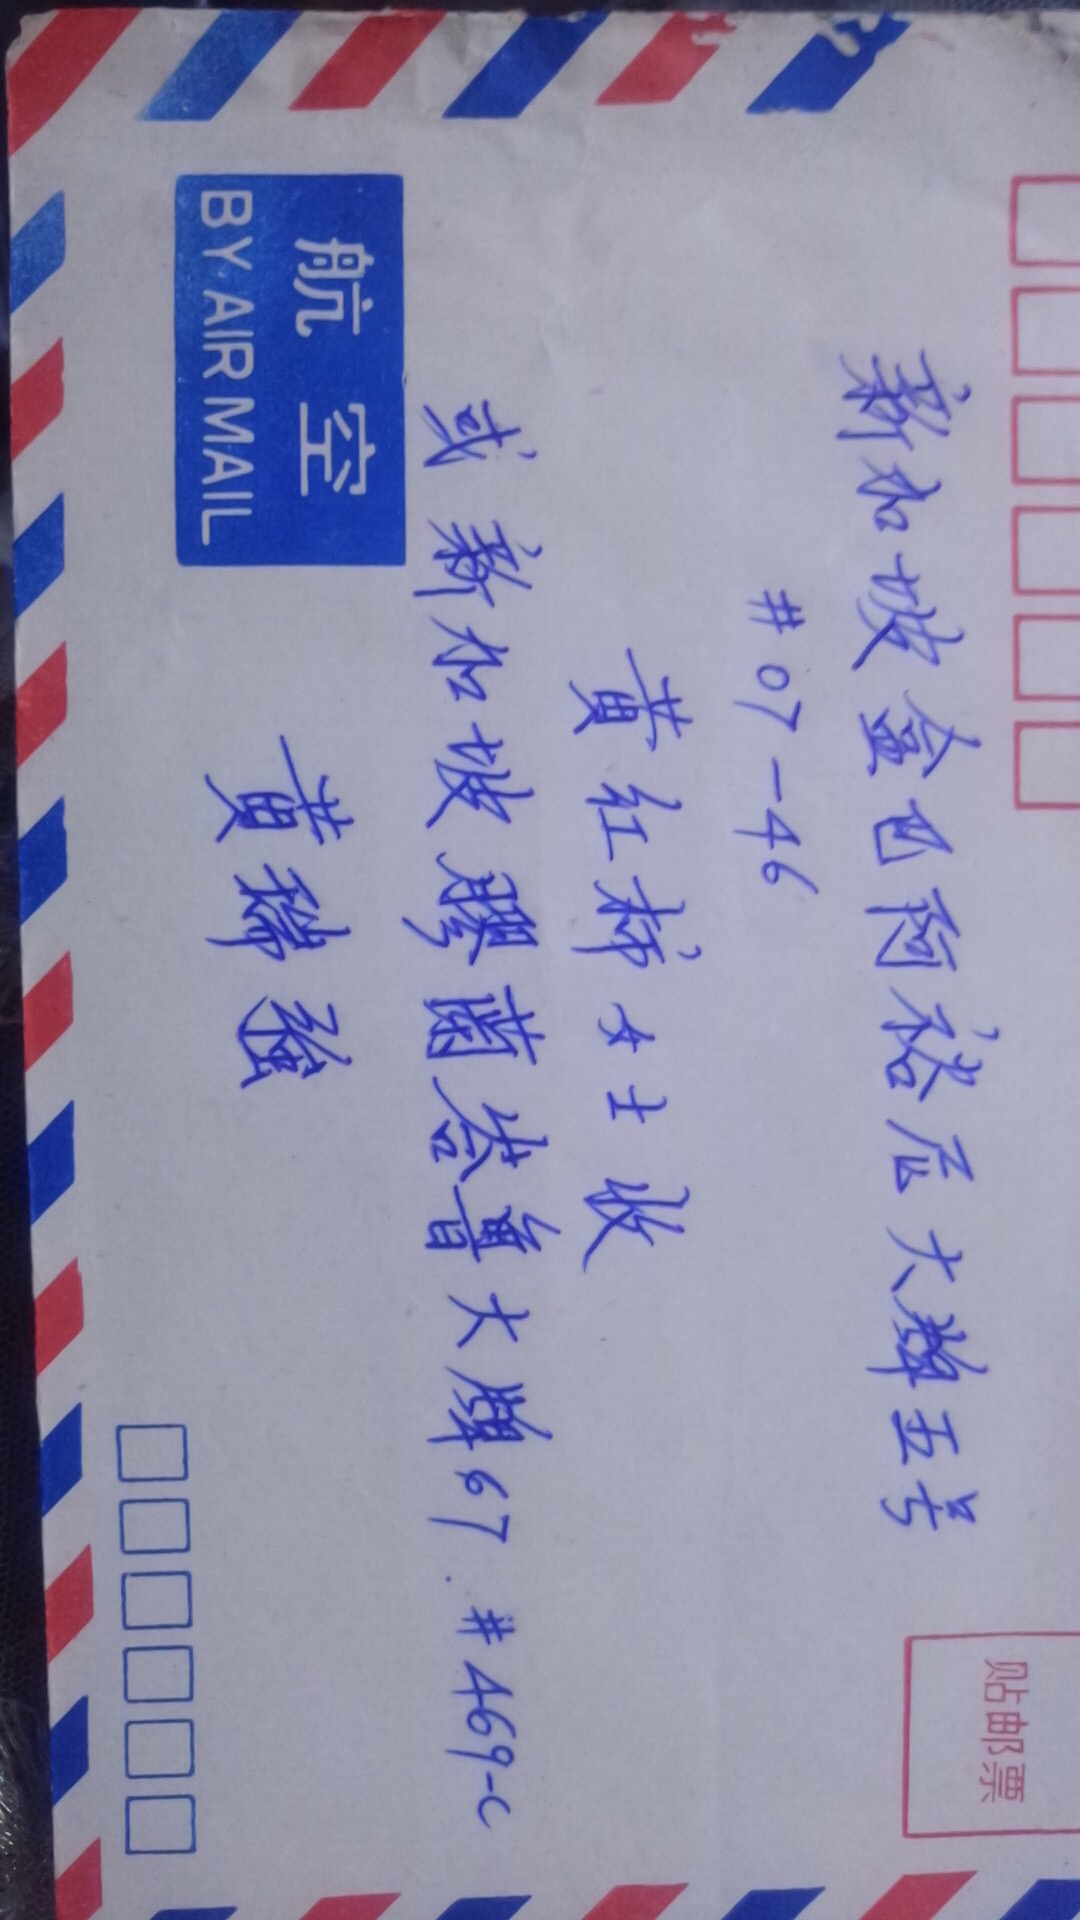 新加坡金巴阿裕尼大牌五号
#07-46
黄红梯女士收
或新加坡胶茵峇鲁大牌67.#469-C
黄瑞强
航空
BY AIR MAIL
贴邮票